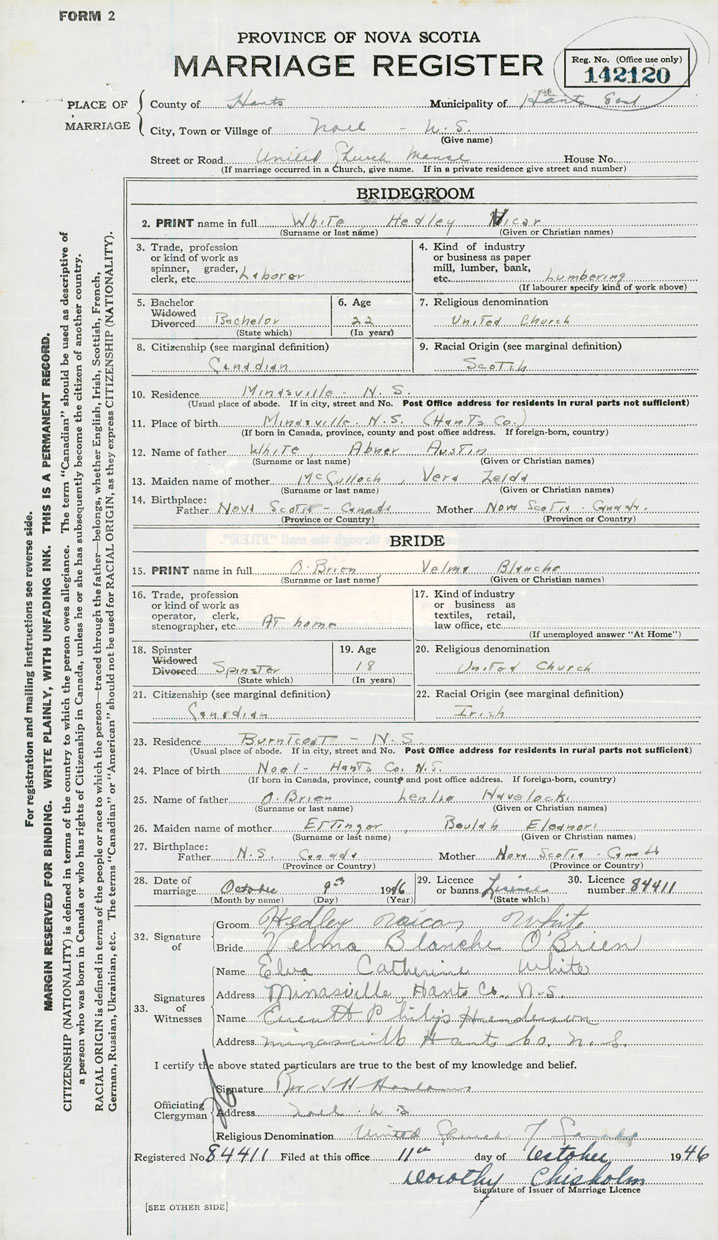 FORM 2
PROVINCE OF NOVA SCOTIA
MARRIAGE REGISTER
Reg. No. (Office use only)
142120
PLACE OF MARRIAGE
County of Hants Municipality of Hants East
City, Town or Village of Noel - N.S.
(Give name)
Street or Road United Church Manse House No.
(If marriage occurred in a Church, give name. If in a private residence give street and number)
BRIDEGROOM
2. PRINT name in full White Hedley Vicar
(Surname or last name) (Given or Christian names)
3. Trade, profession or kind of work as spinner, grader, clerk, etc. Laborer
4. Kind of industry or business as paper mill, lumber, bank, etc. Lumbering
(If labourer specify kind of work above)
5. Bachelor Widowed Divorced Bachelor
(State which)
6. Age 22
(In years)
7. Religious denomination
United Church
8. Citizenship (see marginal definition)
Canadian
9. Racial Origin (see marginal definition)
Scotch
10. Residence Minasville. N.S.
(Usual place of abode. If in city, street and No. Post Office address for residents in rural parts not sufficient)
11. Place of birth Minasville. N.S. (Hants Co.)
(If born in Canada, province, county and post office address. If foreign-born, country)
12. Name of father White, Abner Austin
(Surname or last name) (Given or Christian names)
13. Maiden name of mother McCulloch, Vera Zelda
(Surname or last name) (Given or Christian names)
14. Birthplace:
Father Nova Scotia - Canada Mother Nova Scotia - Canada.
(Province or Country) (Province or Country)
BRIDE
15. PRINT name in full O'Brien Velma Blanche
(Surname or last name) (Given or Christian names)
16. Trade, profession or kind of work as operator, clerk, stenographer, etc. At home
17. Kind of industry or business as textiles, retail, law office, etc.
(If unemployed answer "At Home")
18. Spinster Widowed Divorced Spinster
(State which)
19. Age 18
(In years)
20. Religious denomination
United Church
21. Citizenship (see marginal definition)
Canadian
22. Racial Origin (see marginal definition)
Irish
23. Residence Burntcoat - N.S.
(Usual place of abode. If in city, street and No. Post Office address for residents in rural parts not sufficient)
24. Place of birth Noel - Hants Co. N.S.
(If born in Canada, province, county and post office address. If foreign-born, country)
25. Name of father O'Brien Leslie Havelock
(Surname or last name) (Given or Christian names)
26. Maiden name of mother Ettinger, Beulah Eleanor
(Surname or last name) (Given or Christian names)
27. Birthplace:
Father N.S. Canada Mother Nova Scotia - Canada
(Province or Country) (Province or Country)
28. Date of marriage October 9th 1946
(Month by name) (Day) (Year)
29. Licence or banns License
(State which)
30. Licence number 84411
32. Signature of
Groom Hedley Vicar White
Bride Velma Blanche O'Brien
33. Signatures of Witnesses
Name Elva Catherine White
Address Minasville, Hants Co., N.S.
Name Philip Henderson
Address Minasville Hants Co. N.S.
I certify the above stated particulars are true to the best of my knowledge and belief.
Officiating Clergyman
Signature Rev
Address Noel N S
Religious Denomination United Church of Canada
Registered No. 84411 Filed at this office 11th day of October 1946
Dorothy Chisholm
Signature of Issuer of Marriage Licence
[SEE OTHER SIDE]
For registration and mailing instructions see reverse side.
MARGIN RESERVED FOR BINDING. WRITE PLAINLY, WITH UNFADING INK. THIS IS A PERMANENT RECORD.
CITIZENSHIP (NATIONALITY) is defined in terms of the country to which the person owes allegiance. The term "Canadian" should be used as descriptive of
a person who was born in Canada or who has rights of Citizenship in Canada, unless he or she has subsequently become the citizen of another country.
RACIAL ORIGIN is defined in terms of the people or race to which the person—traced through the father—belongs, whether English, Irish, Scottish, French,
German, Russian, Ukrainian, etc. The terms "Canadian" or "American" should not be used for RACIAL ORIGIN, as they express CITIZENSHIP (NATIONALITY).